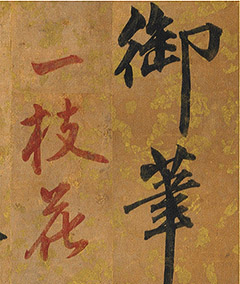 御筆
一枝花